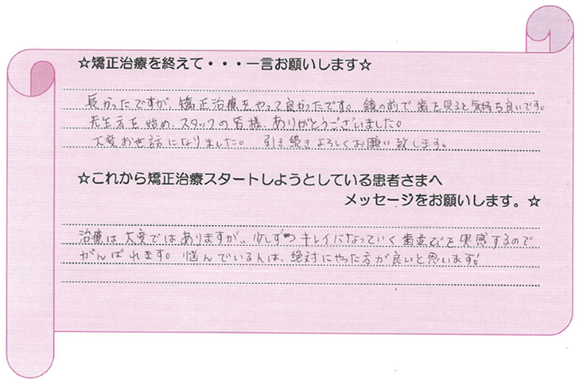 ☆矯正治療を終えて・・・一言お願いします☆
長かったですが、矯正治療をやって良かったです。鏡の前で歯を見ると気持ち良いです。
先生方を始め、スタッフの皆様、ありがとうございました。
大変お世話になりました。 引き続きよろしくお願い致します。
☆これから矯正治療スタートしようとしている患者さまへ
メッセージをお願いします。☆
治療は大変ではありますが、少しずつキレイになっていく歯並びを実感するので
がんばれます。悩んでいる人は、絶対にやった方が良いと思います!